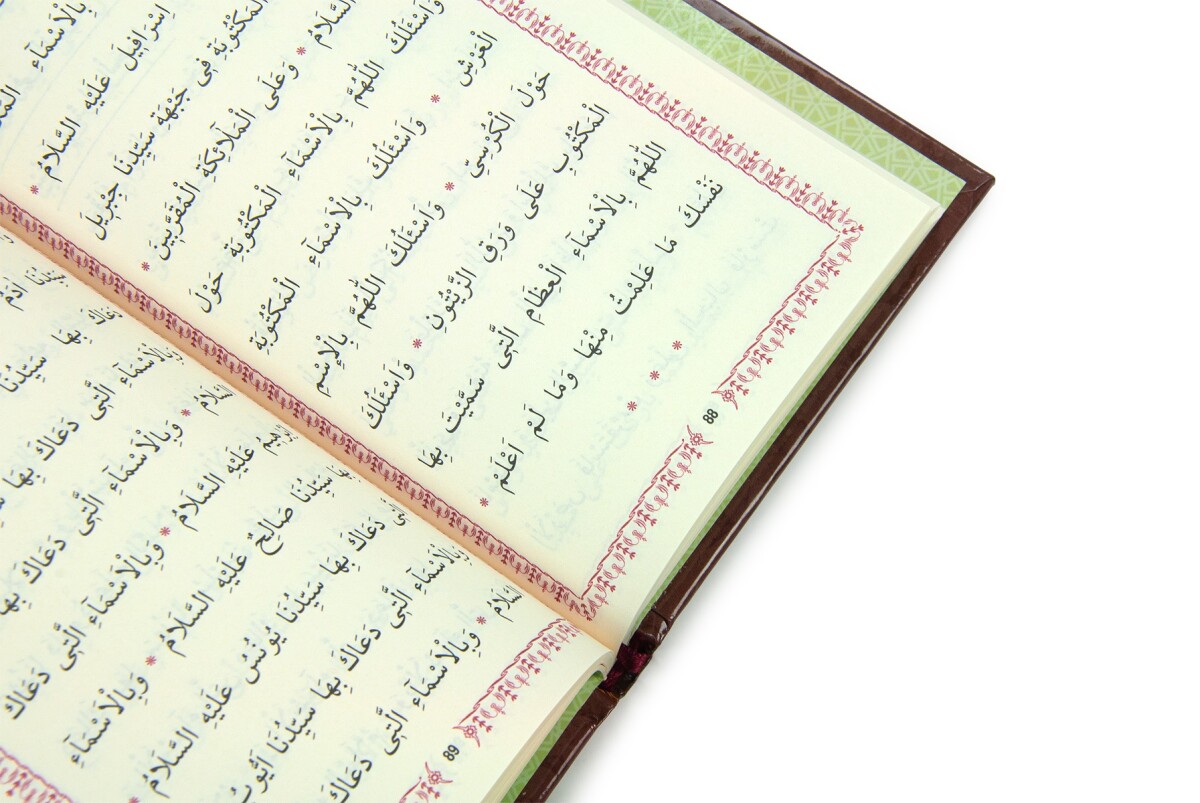 بِالْاَسْمَآءِ
اِسْرَافِيلَ عَلَيْهِ السَّلَامُ *
الْمَكْتُوبَةِ فِى جَبْهَةِ سَيِّدِنَا جِبْرِيلَ
السَّلَامُ * وَعَلَى الْمَلَآئِكَةِ الْمُقَرَّبِينَ *
وَاَسْئَلُكَ اللّٰهُمَّ بِالْاَسْمَآءِ الْمَكْتُوبَةِ حَوْلَ
الْعَرْشِ * وَاَسْئَلُكَ بِالْاَسْمَآءِ الْمَكْتُوبَةِ
حَوْلَ الْكُرْسِيِّ * وَاَسْئَلُكَ اللّٰهُمَّ بِالْاِسْمِ
الْمَكْتُوبِ عَلَى وَرَقِ الزَّيْتُونِ * وَاَسْئَلُكَ
اللّٰهُمَّ بِالْاَسْمَآءِ الْعِظَامِ الَّتِى سَمَّيْتَ بِهَا
نَفْسَكَ مَا عَلِمْتُ مِنْهَا وَمَا لَمْ اَعْلَمْ *
* * *
88
سَيِّدُنَا اٰدَمُ
دَعَاكَ بِهَا سَيِّدُنَا
وَبِالْاَسْمَآءِ الَّتِى دَعَاكَ بِهَا
السَّلَامُ * وَبِالْاَسْمَآءِ الَّتِى دَعَاكَ بِهَا
اِبْرَاهِيمُ عَلَيْهِ السَّلَامُ * وَبِالْاَسْمَآءِ الَّتِى دَعَاكَ
بِهَا سَيِّدُنَا صَالِحٌ عَلَيْهِ السَّلَامُ * وَبِالْاَسْمَآءِ
الَّتِى دَعَاكَ بِهَا سَيِّدُنَا يُونُسُ عَلَيْهِ السَّلَامُ *
وَبِالْاَسْمَآءِ الَّتِى دَعَاكَ بِهَا سَيِّدُنَا اَيُّوبُ
السَّلَامُ * وَبِالْاَسْمَآءِ الَّتِى دَعَاكَ
89